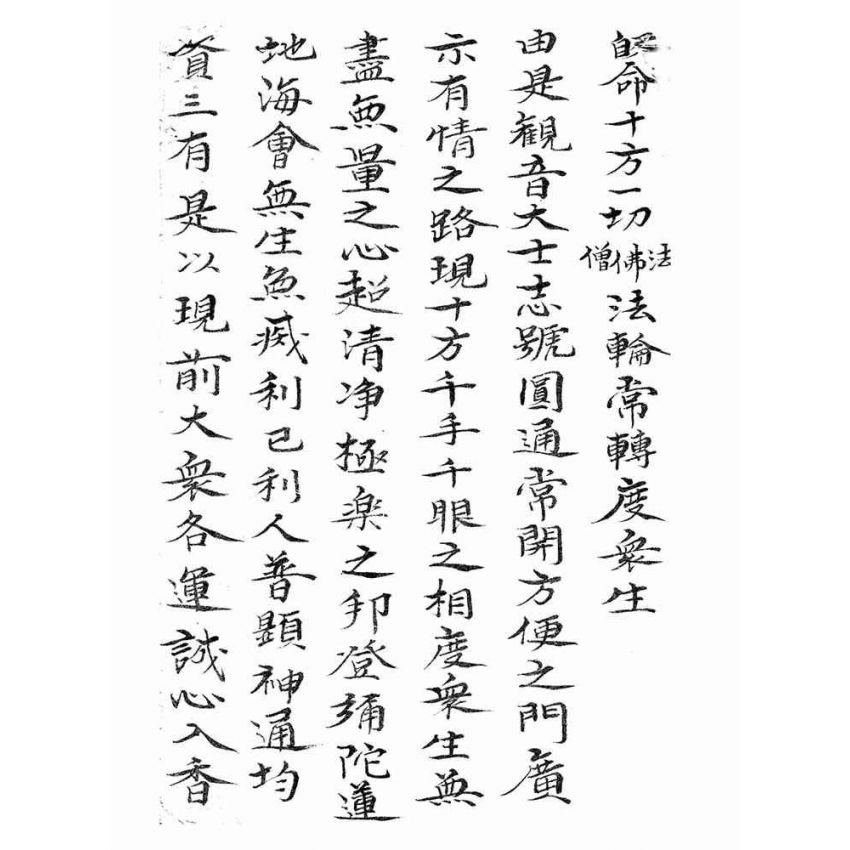 命十方一切佛法僧法輪常轉度衆生
由是觀音大士志號圓通常開方便之門廣
示有情之路現十方千手千眼之相度衆生無
盡無量之心超清净極楽之邦登彌陀蓮
地海會無生無滅利己利人普顕神通均
資三有是以現前大衆各運誠心入香